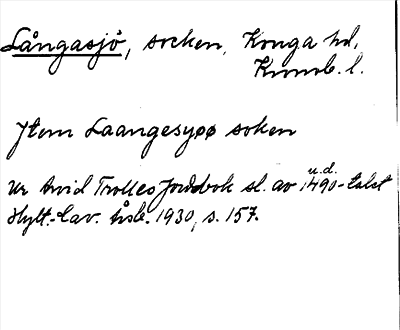 Långasjö, socken, Konga hd,
Kronob. l.
Jtem Laangesyøø soken
Ur Arvid Trolles Jordebok sl. av 1490-talet
u.d.
Hylt.-Cav. Årsb. 1930, s. 157.